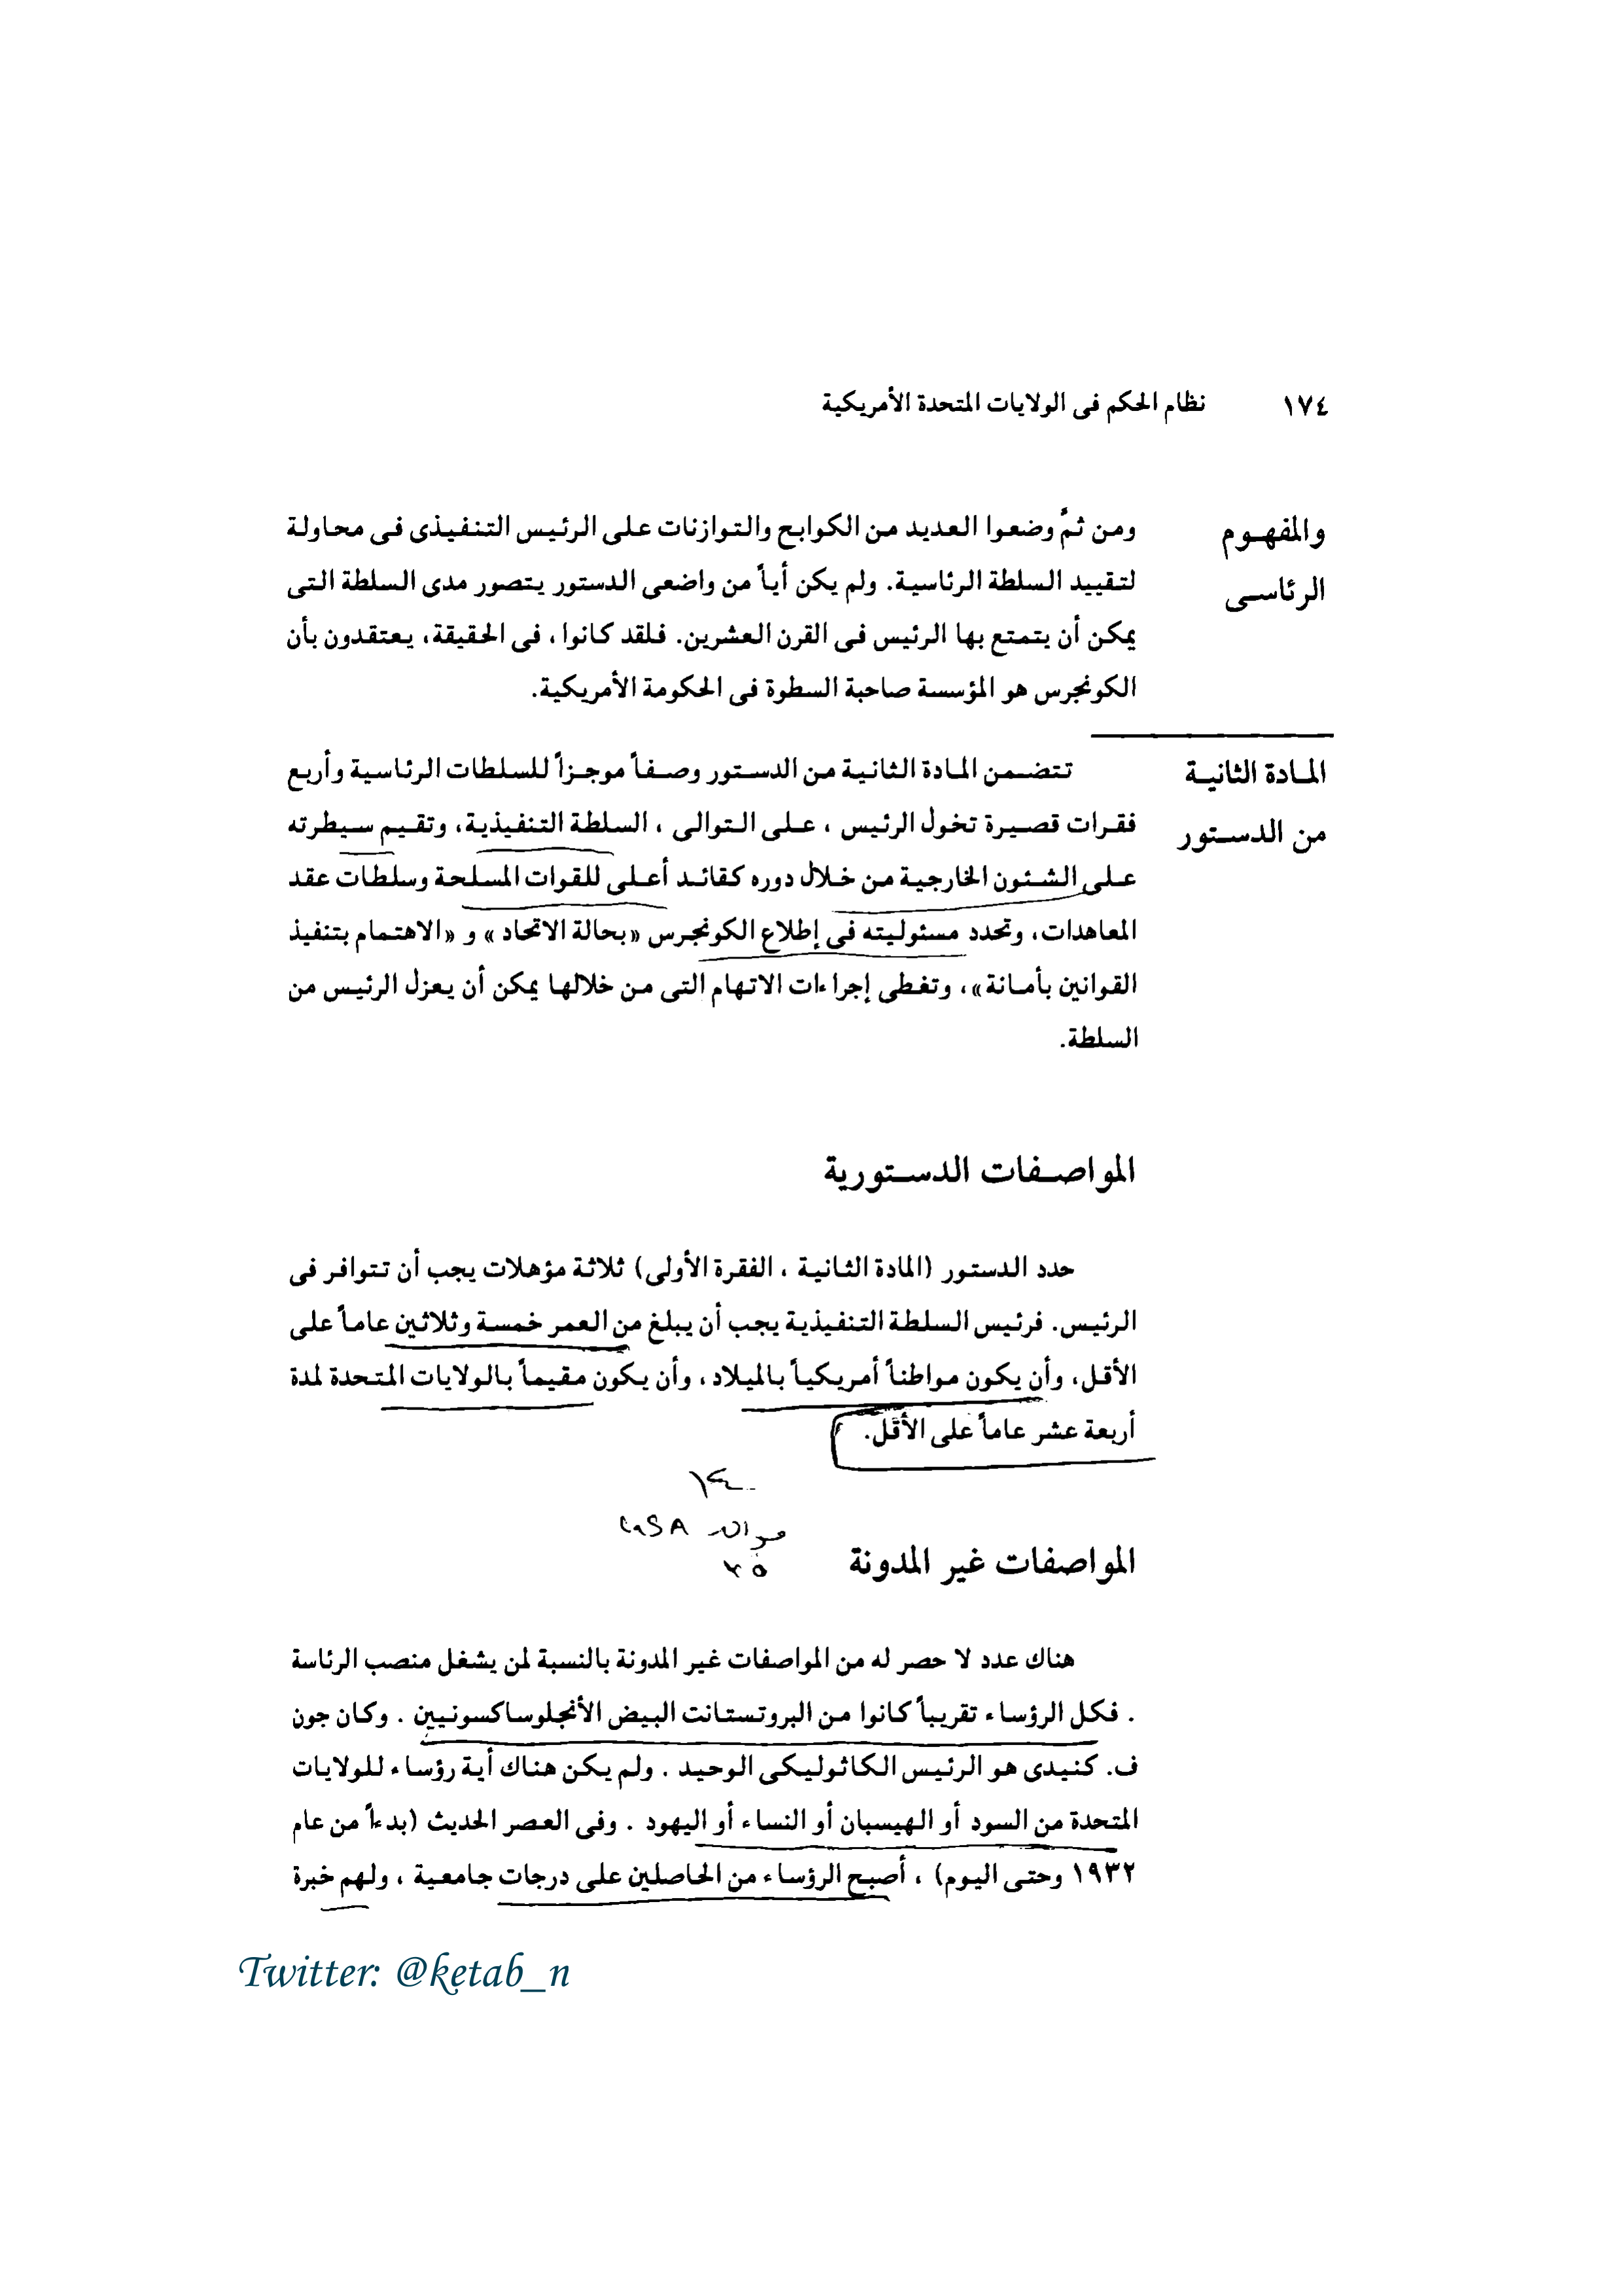 ١٧٤ نظام الحكم فى الولايات المتحدة الأمريكية
والمفهوم
الرئاسى
ومن ثمَّ وضعوا العديد من الكوابح والتوازنات على الرئيس التنفيذى فى محاولة
لتقييد السلطة الرئاسية. ولم يكن أياً من واضعى الدستور يتصور مدى السلطة التى
يمكن أن يتمتع بها الرئيس فى القرن العشرين. فلقد كانوا ، فى الحقيقة، يعتقدون بأن
الكونجرس هو المؤسسة صاحبة السطوة فى الحكومة الأمريكية.
المادة الثانية
من الدستور
تتضمن المادة الثانية من الدستور وصفاً موجزاً للسلطات الرئاسية وأربع
فقرات قصيرة تخول الرئيس ، على التوالى ، السلطة التنفيذية، وتقيم سيطرته
على الشئون الخارجية من خلال دوره كقائد أعلى للقوات المسلحة وسلطات عقد
المعاهدات، وتحدد مسئوليته فى إطلاع الكونجرس «بحالة الاتحاد» و «الاهتمام بتنفيذ
القوانين بأمانة»، وتغطى إجراءات الاتهام التى من خلالها يمكن أن يعزل الرئيس من
السلطة.
المواصفات الدستورية
حدد الدستور (المادة الثانية ، الفقرة الأولى) ثلاثة مؤهلات يجب أن تتوافر فى
الرئيس. فرئيس السلطة التنفيذية يجب أن يبلغ من العمر خمسة وثلاثين عاماً على
الأقل، وأن يكون مواطناً أمريكياً بالميلاد ، وأن يكون مقيماً بالولايات المتحدة لمدة
أربعة عشر عاماً على الأقل.
١٤
USA
٣٥
المواصفات غير المدونة
هناك عدد لا حصر له من المواصفات غير المدونة بالنسبة لمن يشغل منصب الرئاسة
. فكل الرؤساء تقريباً كانوا من البروتستانت البيض الأنجلوساكسونيين . وكان جون
ف. كنيدى هو الرئيس الكاثوليكى الوحيد . ولم يكن هناك أية رؤساء للولايات
المتحدة من السود أو الهيسبان أو النساء أو اليهود . وفى العصر الحديث (بدءاً من عام
١٩٣٢ وحتى اليوم) ، أصبح الرؤساء من الحاصلين على درجات جامعية ، ولهم خبرة
Twitter: @ketab_n